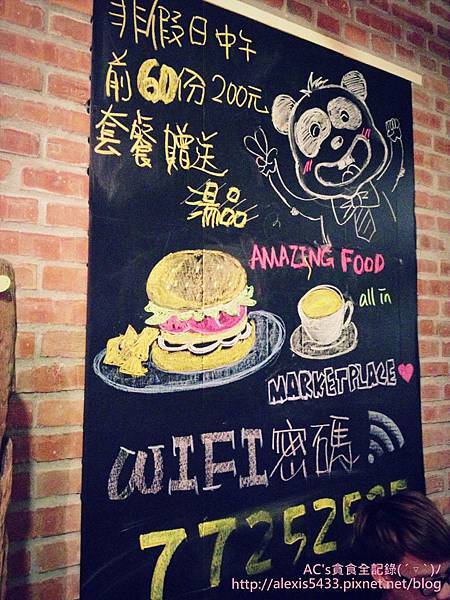 非假日中午
前60份200元
套餐贈送
湯品
AMAZING FOOD
all in
MARKETPLACE
WIFI密碼
77252525
AC's貪食全記錄(´▽`)ﾉ
http://alexis5433.pixnet.net/blog